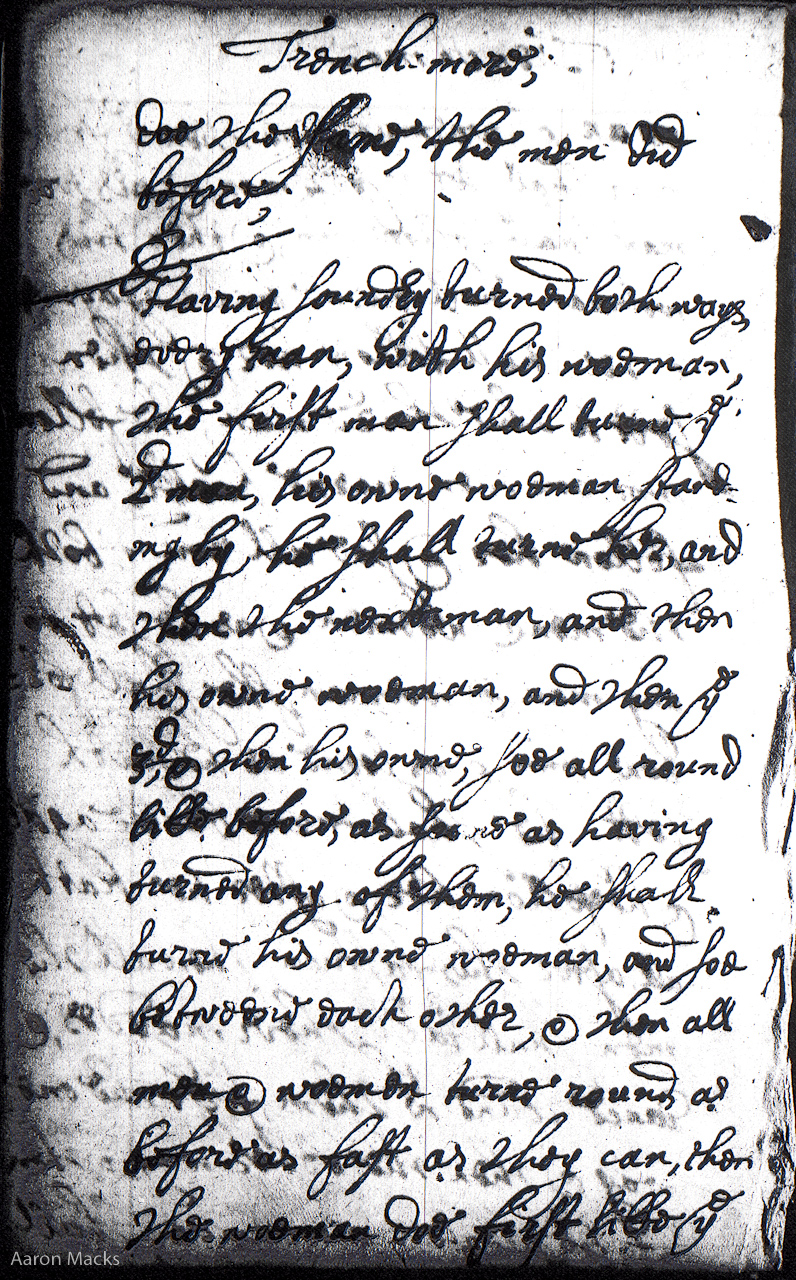 Trench-more,
doe the same, the men did
before,
Having soundly turned both ways,
every man, with his woeman,
the first man shall turne ye
2d man, his owne woeman stand-
ing by, he shall turne her, and
then the next woman, and then
his owne woeman, and then ye
3d, & then his owne, soe all round
like before, as as having
turned any of them, he shall
turne his owne woeman, and soe
betweene each other, & then all
men & woemen turne round as
before as fast as they can, then
the woeman doe first like ye
Aaron Macks